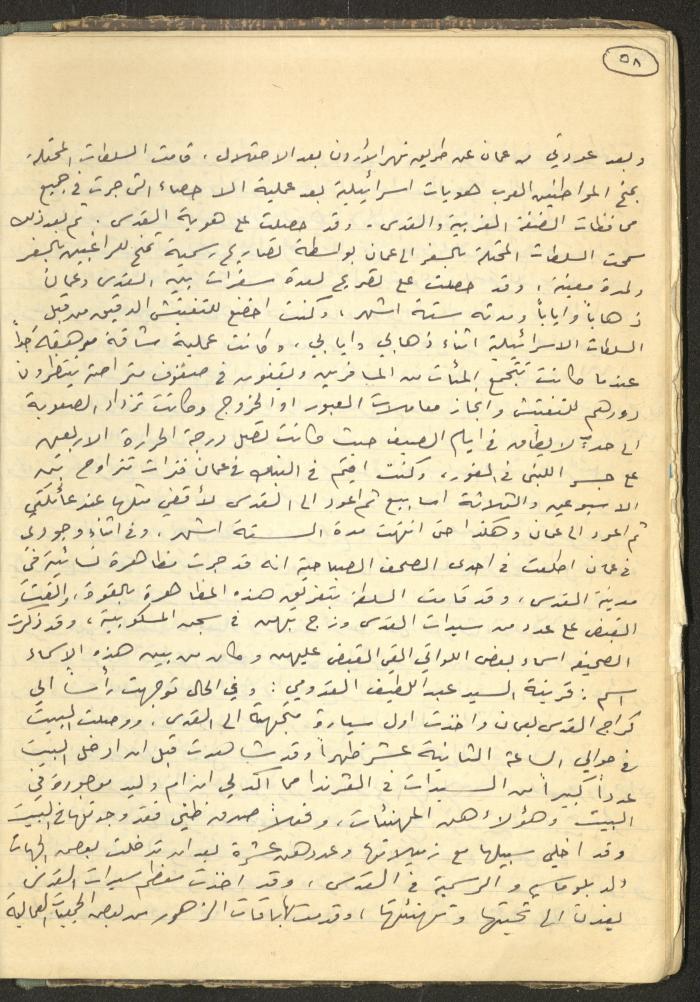 ٥٨
وبعد عودتي من عمان عن طريق نهر الأردن بعد الاحتلال، قامت السلطات المحتلة
بمنح المواطنين العرب هويات اسرائيلية بعد عملية الاحصاء التي جرت في جميع
محافظات الضفة الغربية والقدس. وقد حصلت على هوية القدس. ثم بعد ذلك
سمحت السلطات المحتلة بالسفر الى عمان بواسطة تصاريح رسمية تمنح للراغبين بالسفر
ولمدة معينة، وقد حصلت على تصريح لعدة سفرات بين القدس وعمان
ذهاباً واياباً ومدته ستة اشهر، وكنت اخضع للتفتيش الدقيق من قبل
السلطات الاسرائيلية اثناء ذهابي وايابي، وكانت عملية شاقة مرهقة جداً
عندما كانت تتجمع المئات من المسافرين ويقفون في صفوف متراصة ينتظرون
دورهم للتفتيش وانجاز معاملات العبور او الخروج وكانت تزداد الصعوبة
الى حدٍ لا يطاق في ايام الصيف حيث كانت تصل درجة الحرارة الاربعين
على جسر اللنبي في الغور، وكنت اقيم في البنك في عمان فترات تتراوح بين
الاسبوعين والثلاثة اسابيع ثم اعود الى القدس لأقضي مثلها عند عائلتي
ثم اعود الى عمان وهكذا حتى انتهت مدة الستة اشهر. وفي اثناء وجودي
في عمان اطلعت في احدى الصحف الصباحية انه قد جرت مظاهرة نسائية في
مدينة القدس، وقد قامت السلطة بتفريق هذه المظاهرة بالقوة، والقت
القبض على عدد من سيدات القدس وزج بهن في سجن المسكوبية، وقد ذكرت
الصحيفة اسماء بعض اللواتي القي القبض عليهن وكان من بين هذه الاسماء
اسم: قرينة السيد عبد اللطيف القدومي: وفي الحال توجهت رأساً الى
كراج القدس بعمان واخذت اول سيارة متجهة الى القدس. ووصلت البيت
في حوالي الساعة الثانية عشر ظهراً وقد شاهدت قبل ان ادخل البيت
عدداً كبيراً من السيدات في الفرندا مما اكد لي ان ام وليد موجودة في
البيت وهؤلاء هن المهنئات، وفعلاً صدق ظني فقد وجدتها في البيت
وقد اخلي سبيلها مع زميلاتها وعددهن عشرة بعد ان تدخلت بعض الجهات
الدبلوماسية والرسمية في القدس، وقد اخذت معظم سيدات القدس
يفدن الى تحيتها وتهنئتها، وقدمت لها باقات الزهور من بعض الجمعيات العمالية